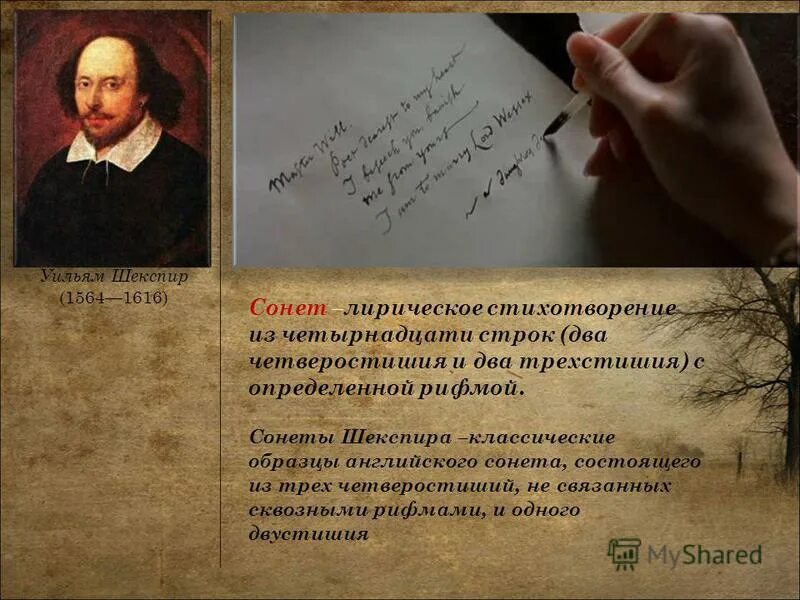 Master Will.
Poet dearest to my heart
I beseech you banish
me from yours
I am to marry Lord Wessex
Уильям Шекспир
(1564—1616)
Сонет –лирическое стихотворение
из четырнадцати строк (два
четверостишия и два трехстишия) с
определенной рифмой.
Сонеты Шекспира –классические
образцы английского сонета, состоящего
из трех четверостиший, не связанных
сквозными рифмами, и одного
двустишия
MyShared